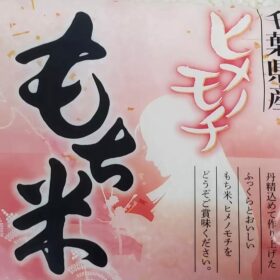 千葉県産
ヒメノモチ
もち米
丹精込めて作り上げた
ふっくらとおいしい
もち米、ヒメノモチを
どうぞご賞味ください。